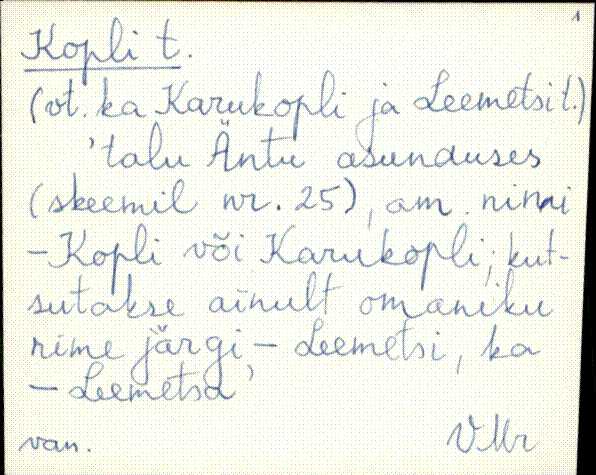 1
Kopli t.
(vt. ka Karukopli ja Leemetsi t.)
'talu Äntu asunduses
(skeemil nr. 25), am. nimi
- Kopli või Karukopli; kut-
sutakse ainult omaniku
nime järgi - Leemetsi, ka
- Leemetsa'
van. VMr